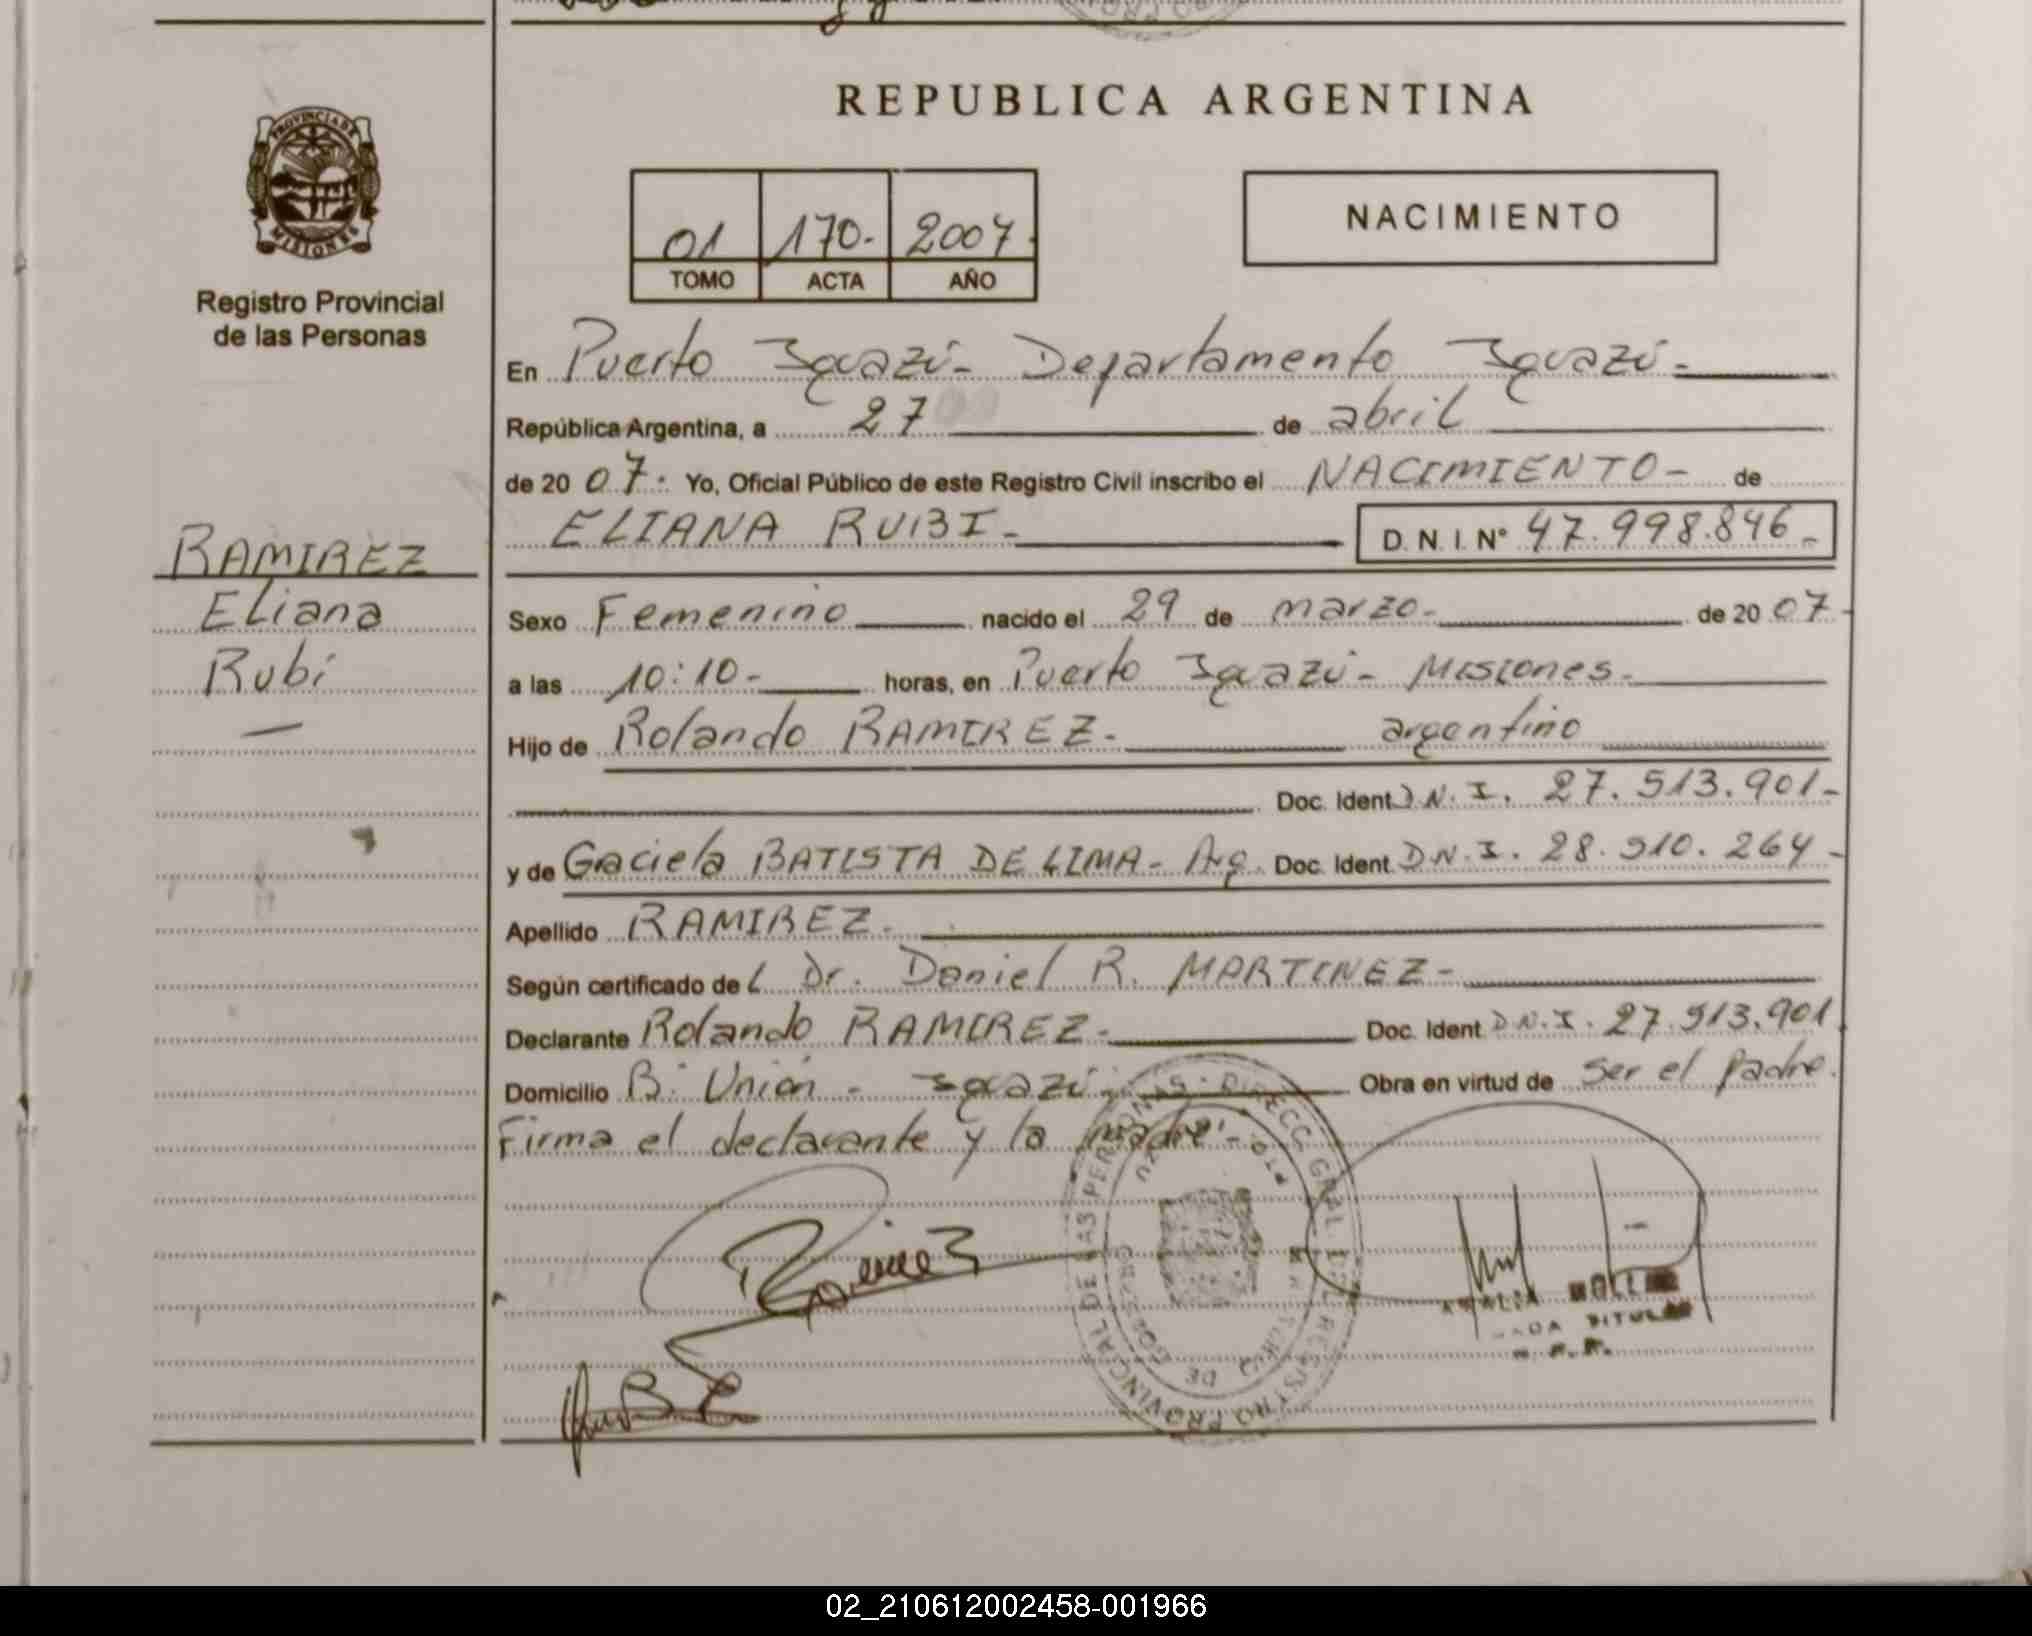 REPUBLICA ARGENTINA
PROVINCIA DE
MISIONES
Registro Provincial
de las Personas
01 170.- 2007.
TOMO ACTA AÑO
NACIMIENTO
En Puerto Iguazú- Departamento Iguazú-
República Argentina, a 27 de abril
de 20 07. Yo, Oficial Público de este Registro Civil inscribo el NACIMIENTO- de
ELIANA RUBI- D. N. I. N° 47.998.846-
RAMIREZ
Eliana
Rubi
Sexo Femenino nacido el 29 de marzo- de 20 07-
a las 10:10- horas, en Puerto Iguazú- Misiones-
Hijo de Rolando RAMIREZ- argentino
Doc. Ident. D.N.I. 27.513.901-
y de Graciela BATISTA DE LIMA- Arg. Doc. Ident. D.N.I. 28.510.264-
Apellido RAMIREZ-
Según certificado del Dr. Daniel R. MARTINEZ-
Declarante Rolando RAMIREZ- Doc. Ident. D.N.I. 27.513.901
Domicilio B: Unión - Iguazú- Obra en virtud de ser el padre.
Firma el declarante y la madre-
Ramirez
REGISTRO PROVINCIAL DE LAS PERSONAS · DIRECC GRAL DEL
02_210612002458-001966